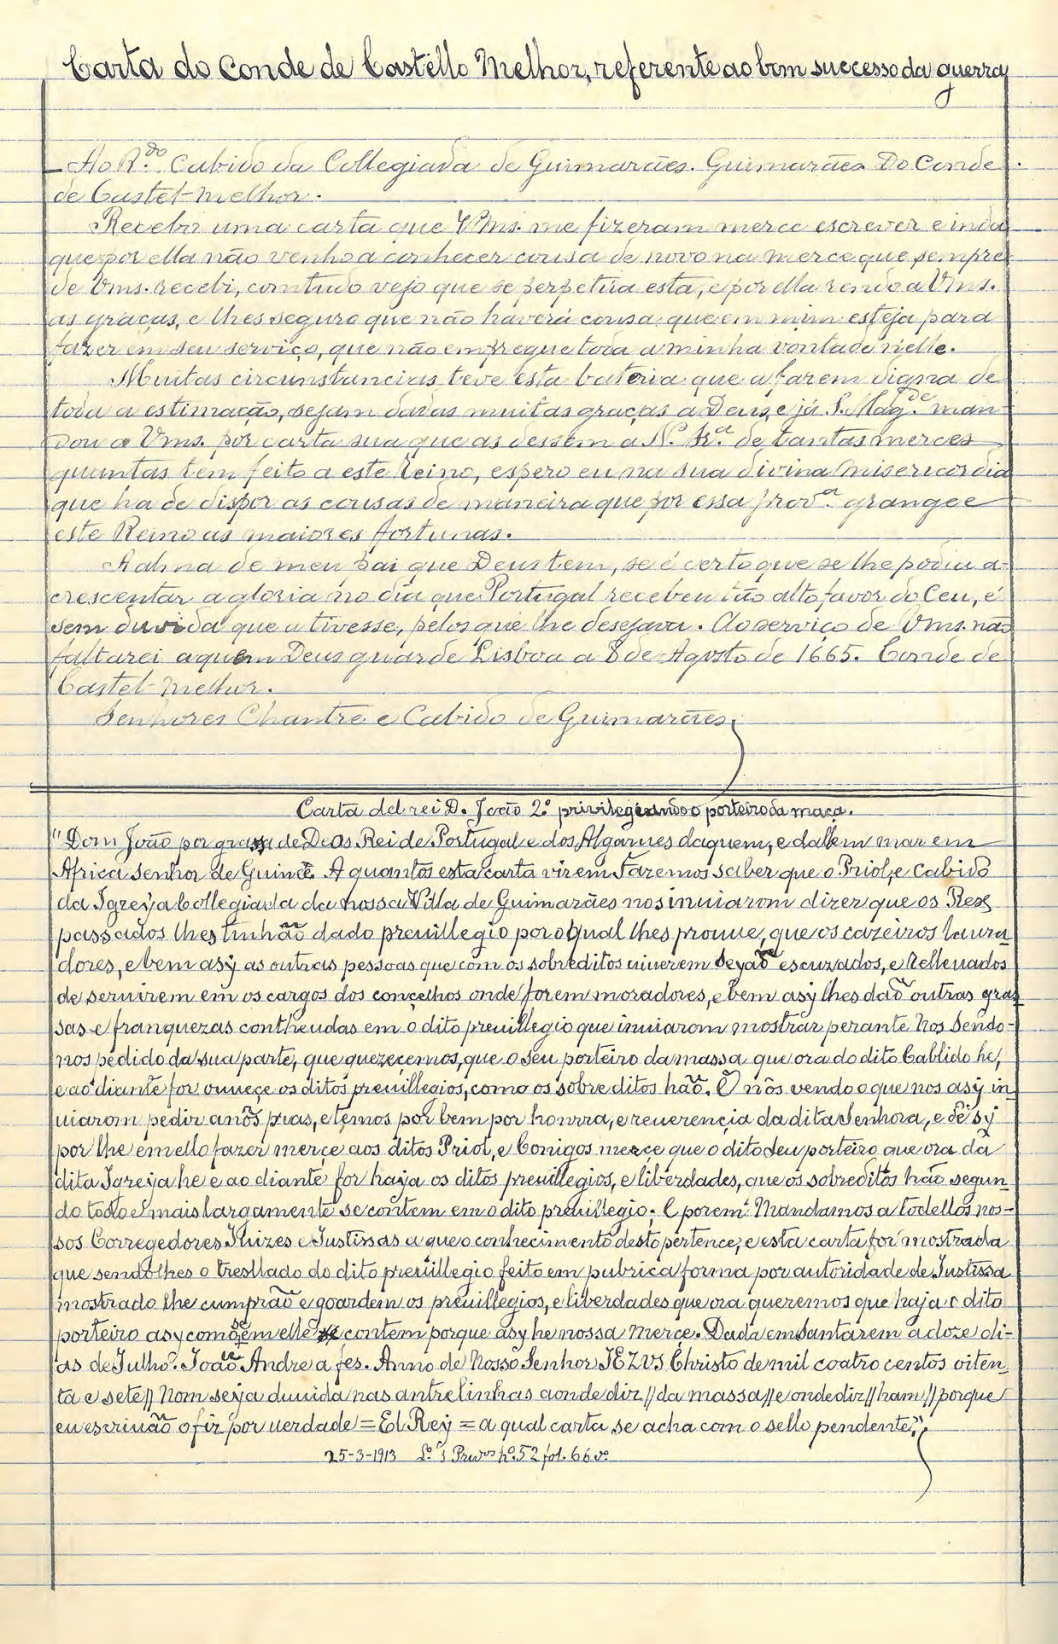 Carta do Conde de Castello Melhor, referente ao bom successo da guerra
Ao R.do Cabido da Collegiada de Guimarães. Guimarães Do Conde
de Castel-Melhor.
Recebo uma carta que VMs. me fizeram merce escrever e inda
que por ella não venho a conhecer cousa de novo na merce que sempre
de Vms. recebi, comtudo vejo que se perpetúa esta, e por ella rendo a Vms.
as graças, e lhes seguro que não haverá cousa que em mim esteja para
fazer em seu serviço, que não empregue toda a minha vontade nelle.
Muitas circunstancias teve esta bateria que a fazem digna de
toda a estimação, sejam dadas muitas graças a Deus, e já S. Mag.de man-
dou a Vms. por carta sua que as dessem a N. Sr.a de tantas merces
quantas tem feito a este Reino, espero eu na sua divina misericordia
que ha de dispor as cousas de maneira que por essa prov.a grangee
este Reino as maiores fortunas.
A alma de meu pai que Deus tem, se é certo que se lhe podia a-
crescentar a gloria no dia que Portugal recebeu tão alto favor do Ceu, é
sem duvida que a tivesse, pelos que lhe desejava. Ao serviço de Vms. não
faltarei a quem Deus guarde Lisboa a 8 de Agosto de 1665. Conde de
Castel-Melhor.
Senhores Chantre e Cabido de Guimarães.
Carta del rei D. João 2º privilegiando o porteiro da maça.
"Dom João por grassa de Deos Rei de Portugal e dos Algarues daquem, e dallem mar em
Africa Senhor de Guiné. A quantos esta carta virem Fazemos saber que o Priol, e Cabido
da Igreya Collegiada da nossa Villa de Guimarães nos inuiarom dizer que os Rex
passados lhes tinhão dado preuillegio por o qual lhes prouue, que os cazeiros laura-
dores, e bem asy as outras pessoas que com os sobreditos uiuerem seyão escuzados, e Relleuados
de seruirem em os cargos dos conçelhos onde forem moradores, e bem asy lhes dão outras gras-
sas e franquezas contheudas em o dito preuillegio que inuiarom mostrar perante Nos Sendo-
nos pedido da sua parte, que quezecemos, que o seu porteiro da massa que ora do dito Cabbido he,
e ao diante for ouueçe os ditos preuillegios, como os sobreditos hão. E nós vendo o que nos asy in
uiarom pedir a nós pras, e temos por bem por honrra, e reuerença da dita Senhora, e de sy
por lhe em ello fazer merçe aos ditos Priol, e Conigos merce que o dito seu porteiro que ora da
dita Igreya he e ao diante for haya os ditos preuillegios, e liberdades, que os sobreditos hão segun-
do todo e mais largamente se contem em o dito preuillegio. E porem Mandamos a todollos nos-
sos Corregedores Iuizes e Iustissas a que o conhecimento desto pertence, e esta carta for mostrada
que sendolhes o tresllado do dito preuillegio feito em pubrica forma por autoridade de Iustissa
mostrado lhe cumprão e goardem os preuillegios, e liberdades que ora queremos que haja o dito
porteiro asy como se em elle contem porque asy he nossa merce. Dada em Santarem a doze di-
as de Julho. João Andre a fes. Anno de Nosso Senhor IEZVS Christo de mil coatro centos oiten-
ta e sete // Nom seya duuida nas antrelinhas aonde diz // da massa // e onde diz // ham // porque
eu escriuão o fiz por uerdade = El Rey = a qual carta se acha com o sello pendente."
25-3-1913 L.º 3 nº 52 fol. 66 vº